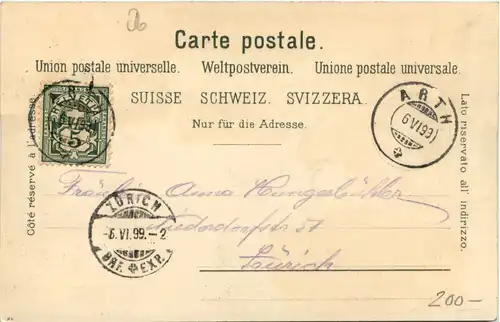 Carte postale.
Union postale universelle. Weltpostverein. Unione postale universale.
SUISSE SCHWEIZ. SVIZZERA.
Nur für die Adresse.
Côté réservé à l'adresse.
Lato riservato all' indirizzo.
HELVETIA
5
ARTH
6 VI 99
Fräulein Anna Hungerbühler
Niederdorfstr 51
Zürich
ZÜRICH
-6. VI. 99.-2
BRF. EXP.
200-